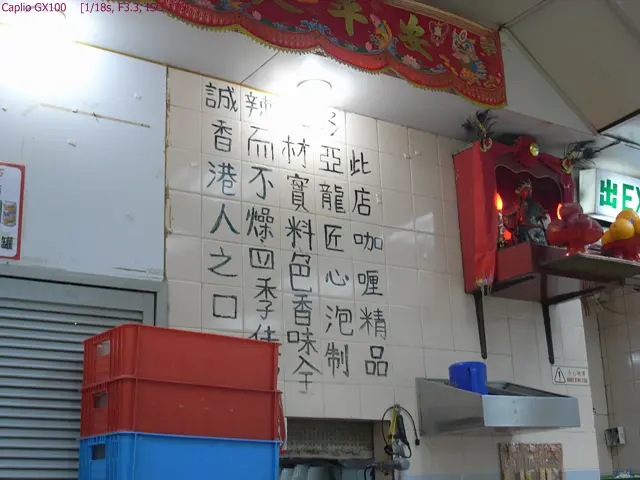 Caplio GX100 [1/18s, F3.3,
平安
此店咖喱精品
亞龍匠心泡制
材實料色香味全
辣而不燥四季佳
誠香港人之口
出EX
罐